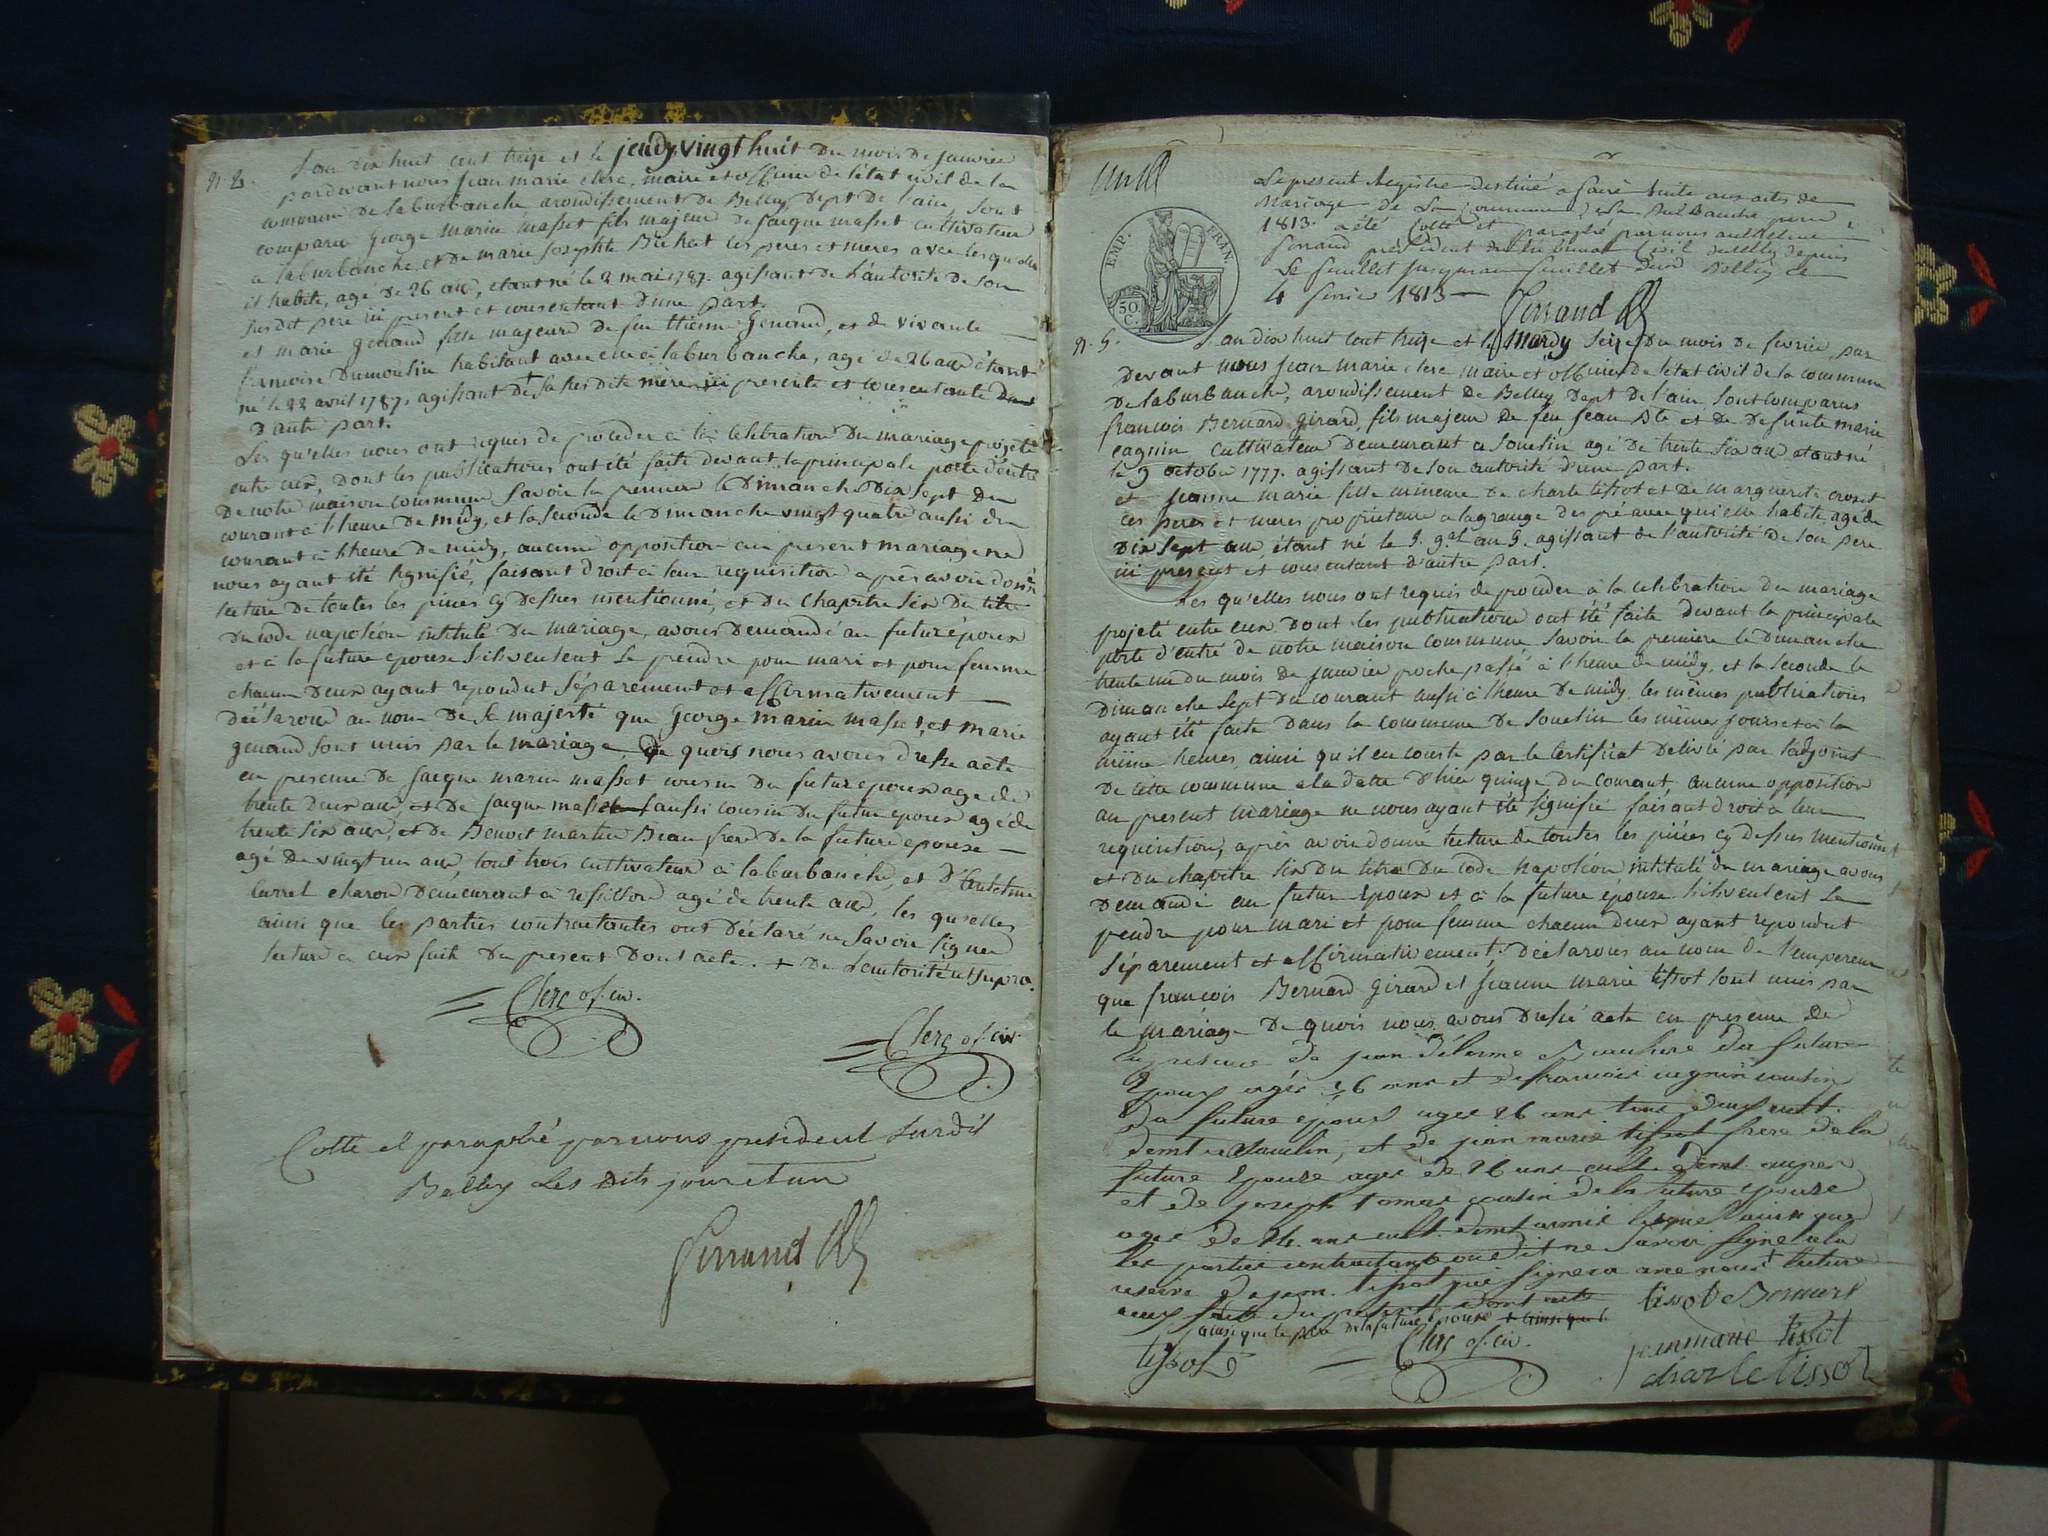 n. 4.
L'an dix huit cent treize et le jeudy vingt huit du mois de janvier
pardevant nous jean marie clerc, maire et officier de l'état civil de la
commune de laburbanche arondissement de Belley Dept de l'ain, sont
comparu George marin masset fils majeur de jacque masset cultivateur
a laburbanche, et de marie josephte les peres et meres avec lesquelles
il habite, agé de 26 ans, etant né le 2 mai 1787. agissant de l'autorité de son
susdit pere ici present et consentant d'une part.
et marie genand fille majeure de feu Genand, et de vivante
francoise Dumoulin habitant avec elle à laburbanche, agé de 26 ans étant
né le 22 avril 1787. agissant de + sa susdite mère ici presente et consentante
D'autre part.
Les qu'elles nous ont requis de proceder à la celebration du mariage projeté
entre eux, dont les publications ont été faite devant la principale porte d'entré
de notre maison commune savoir la premiere le Dimanche Dix sept du
courant à l'heure de midy, et la seconde le Dimanche vingt quatre aussi du
courant à l'heure de midy, aucune opposition au present mariage ne
nous ayant été signifié, faisant droit à leur requisition après avoir donné
lecture de toutes les pieces cy dessus mentionné, et du chapitre six du titre
du code napoléon intitulé du mariage, avons demandé au futur époux
et à la future epouse s'ils veulent se prendre pour mari et pour femme
chacun deux ayant repondut séparement et affirmativement
Déclarons au nom de Sa majesté que George marin masset, et marie
genand sont unis par le mariage, de quois nous avons dressé acte
en presence de jacque marin masset cousin du futur epoux agé de
trente deux ans, et de jacque masset aussi cousin du futur epoux agé de
trente six ans, et de Benoit martin Beau frere de la future epouse
agé de vingt un ans, tout trois cultivateur à laburbanche, et d'
charon demeurant à agé de trente ans, les quelles
ainsi que les parties contractantes ont déclaré ne savoir signer
lecture a eux faite du present dont acte. + de l'autorité ut supra.
Clerc of. civ.
Clerc of. civ.
Cotté et paraphé par nous president susdit
Belley les dits jour et an
Le present Registre destiné a faire suite aux actes de
mariage de la commune de La Burbanche pour
1813. a été Cotté et paraphé par nous
president du tribunal Civil de Belley depuis
Le feuillet jusqu'au feuillet Belley le
4 fevrier 1813
EMP. FRAN.
50 C.
n. 5.
L'an dix huit cent treize et le Mardy seize du mois de fevrier, par
devant nous jean marie clerc maire et officier de l'etat civil de la commune
de laburbanche, arondissement de Belley Dept de l'ain, sont comparus
francois Bernard Girard, fils majeur de feu jean Bte et de defunte marie
cagnin cultivateur demeurant a agé de trente six ans etant né
le 9 octobre 1777. agissant de son autorité d'une part.
et jeanne marie fille mineure de charle tissot et de marguerite crozet
ces peres et meres proprietaire a lagrange des pré avec qu'elle habite, agé de
Dix sept ans étant né le 5. 9bre an 5. agissant de l'autorité de son pere
ici present et consentant d'autre part.
Les qu'elles nous ont requis de proceder à la celebration du mariage
projeté entre eux. Dont les publications ont été faite devant la principale
porte d'entré de notre maison commune, savoir la premiere le Dimanche
trente un du mois de janvier proche passé à l'heure de midy, et la seconde le
Dimanche sept du courant aussi à l'heure de midy, les mêmes publications
ayant été faite dans la commune de les même jours et à la
même heures, ainsi qu'il en conste par le Certificat delivré par l'adjoint
de cette commune a la datte d'hier quinze du courant, aucune opposition
au present mariage ne nous ayant été signifié faisant droit à leur
requisition, après avoir donné lecture de toutes les pièces cy dessus mentionné
et du chapitre six du titre du Code napoléon intitulé du mariage avons
demandé au futur époux et à la future épouse s'ils veulent se
prendre pour mari et pour femme chacun deux ayant repondut
séparement et affirmativement. Déclarons au nom de l'empereur
que francois Bernard Girard et jeanne marie tissot sont unis par
le mariage de quois nous avons dressé acte en presence de
la presence de jean du futur
epoux agée 36 ans et de francois cagnin cousin
du future epoux agée 26 ans tous deux cult.
demt a et de jean marie tissot frere de la
future epouze agee de 26 ans cult. demt
et de joseph cousin de la future epouze
agee de 24. ans cult. demt lesquels ainsi que
les parties contractant ont dit ne savoir signé a la
reserve de jean m. tissot qui signera avec nous + lecture
a eux faite du present dont acte
+ ainsi que le père de la future épouse
tissot Bernard
jeanmarie tissot
charle tissot
Clerc of. civ.
tissot